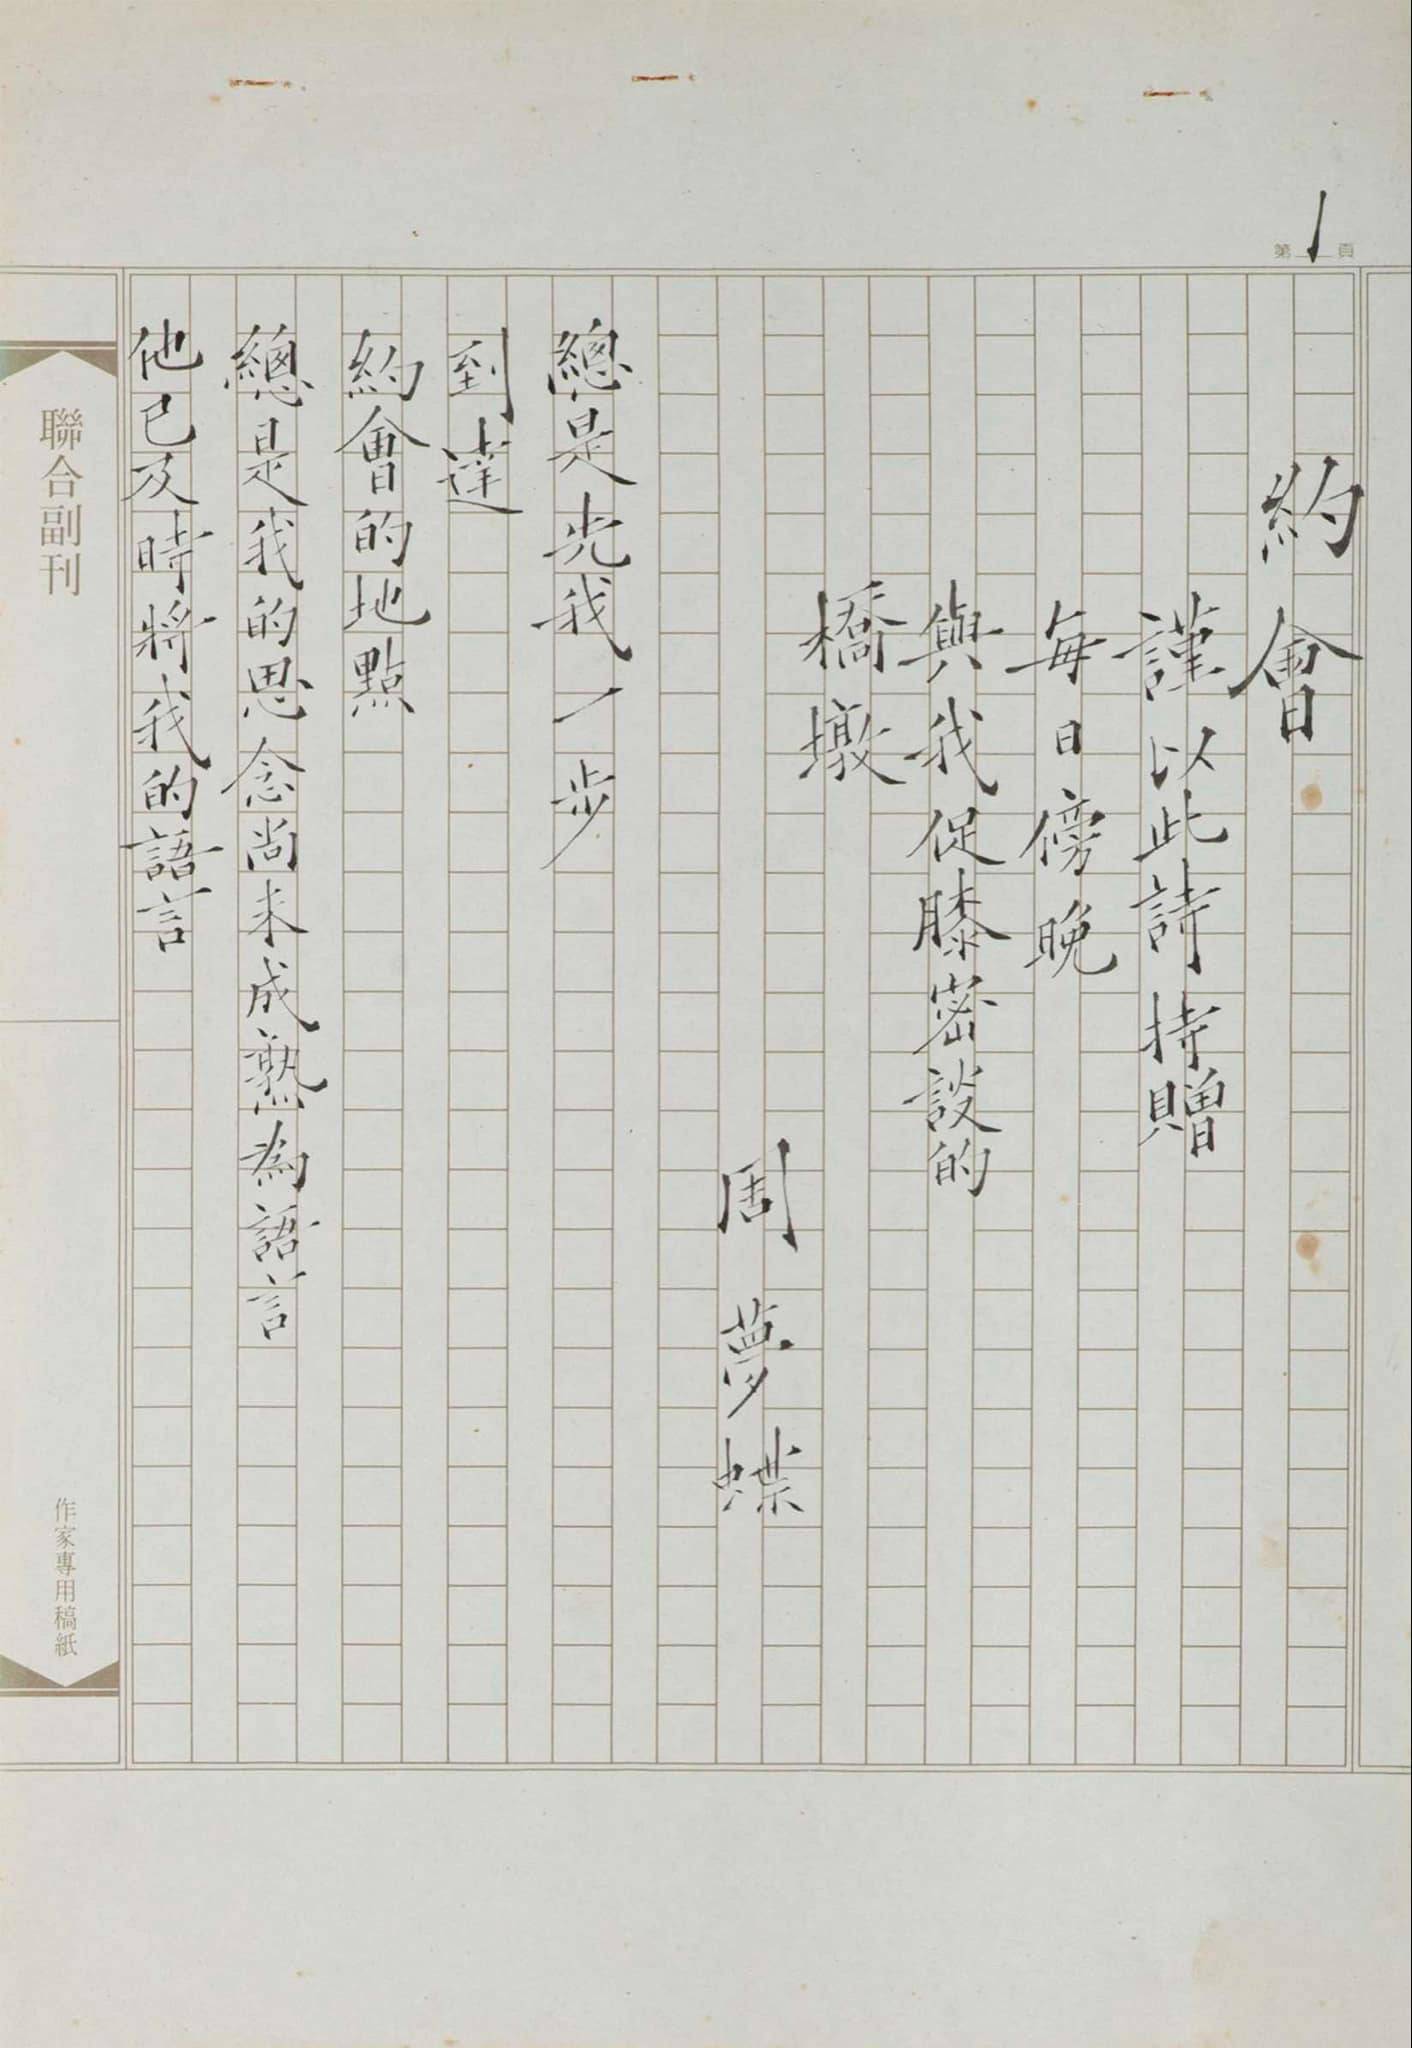 第1頁
約會
謹以此詩持贈
每日傍晚
與我促膝密談的
橋墩
周夢蝶
總是先我一步
到達
約會的地點
總是我的思念尚未成熟為語言
他已及時將我的語言
聯合副刊
作家專用稿紙